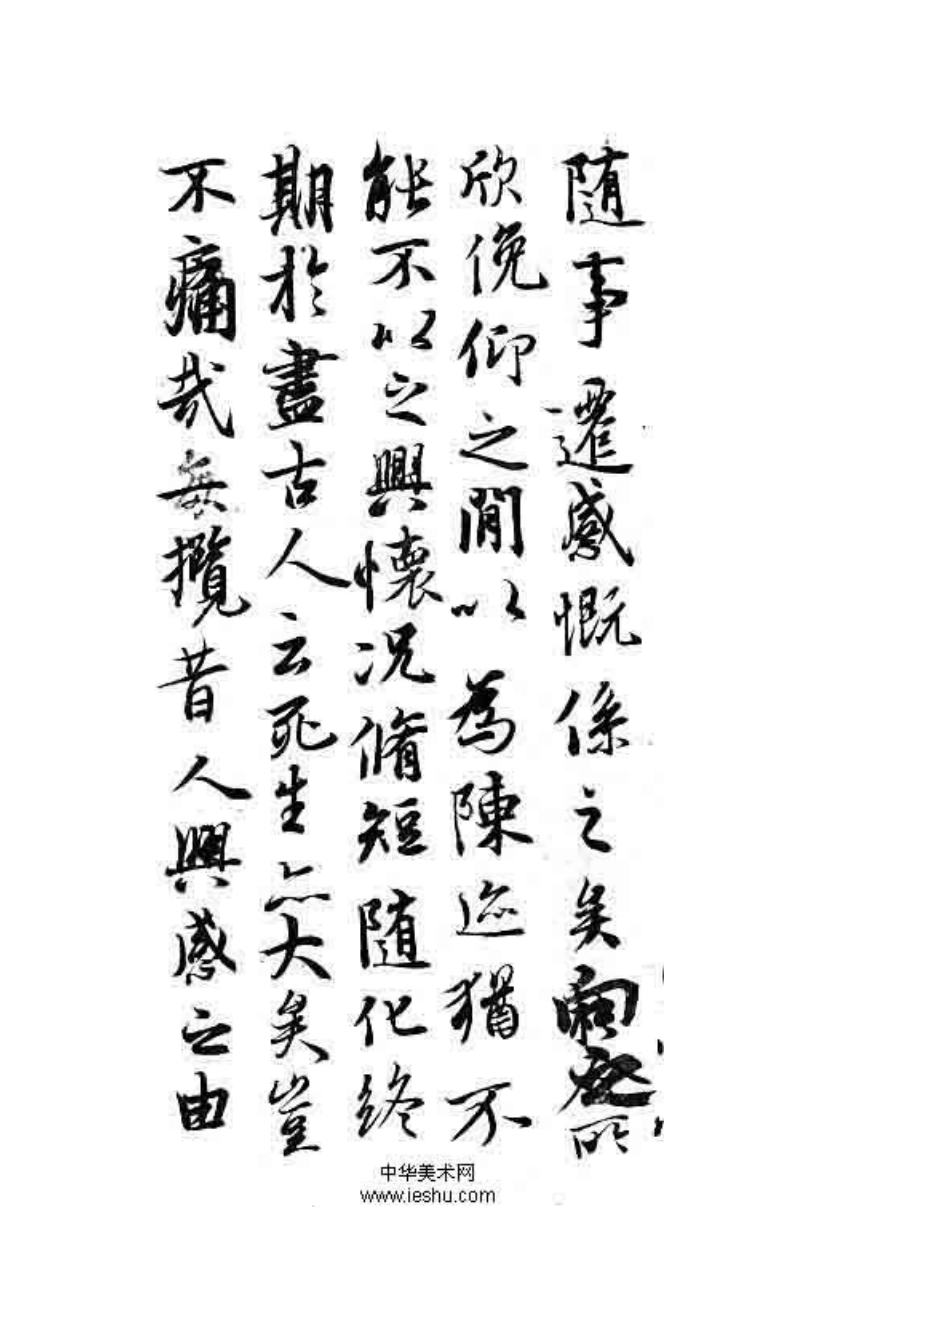 隨事遷感慨係之矣向之所
欣俛仰之閒以為陳迹猶不
能不以之興懷況脩短隨化終
期於盡古人云死生亦大矣豈
不痛哉每攬昔人興感之由
中华美术网
www.ieshu.com